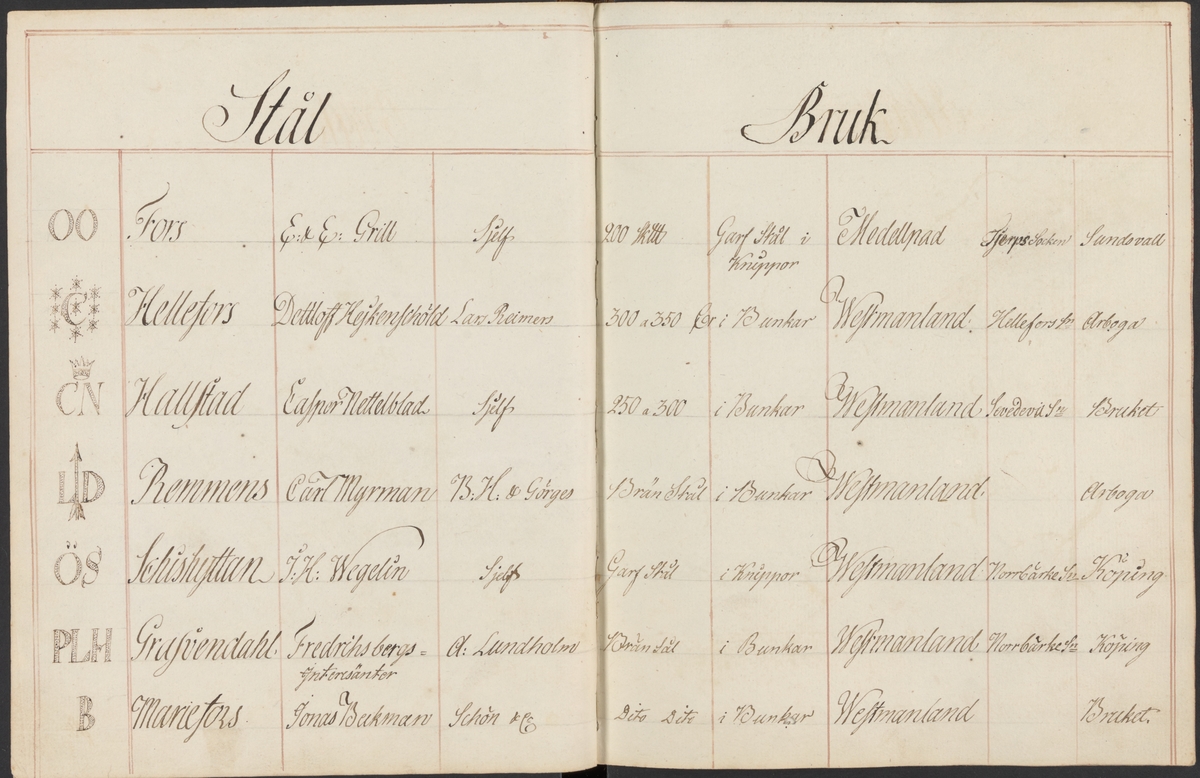 Stål Bruk
OO Fors E: & E: Grill Sjelf 200 Garf Stål i Medellpad Socken Sundsvall
Knippor
C Hellefors Dettloff Heijkensköld Lars Reimers 300 a 350 i Bunkar Westmanland Hellefors Sn Arboga
CN Hallstad Casper Nettelblad Sjelf 250 a 300 i Bunkar Westmanland Sevedevi Sn Bruket
LD Remmens Carl Myrman B: H: & Görges Brän Stål i Bunkar Westmanland Arboga
ÖS Schishyttan J: H: Wegelin Sjelf Garf Stål i Knippor Westmanland Norrbärke Sn Köping
PLH Grafvendahl Fredrichsbergs= A: Lundholm Brän Stål i Bunkar Westmanland Norrbärke Sn Köping
Interesänter
B Mariefors Jonas Bäckman Schön & C Dito Dito i Bunkar Westmanland Bruket